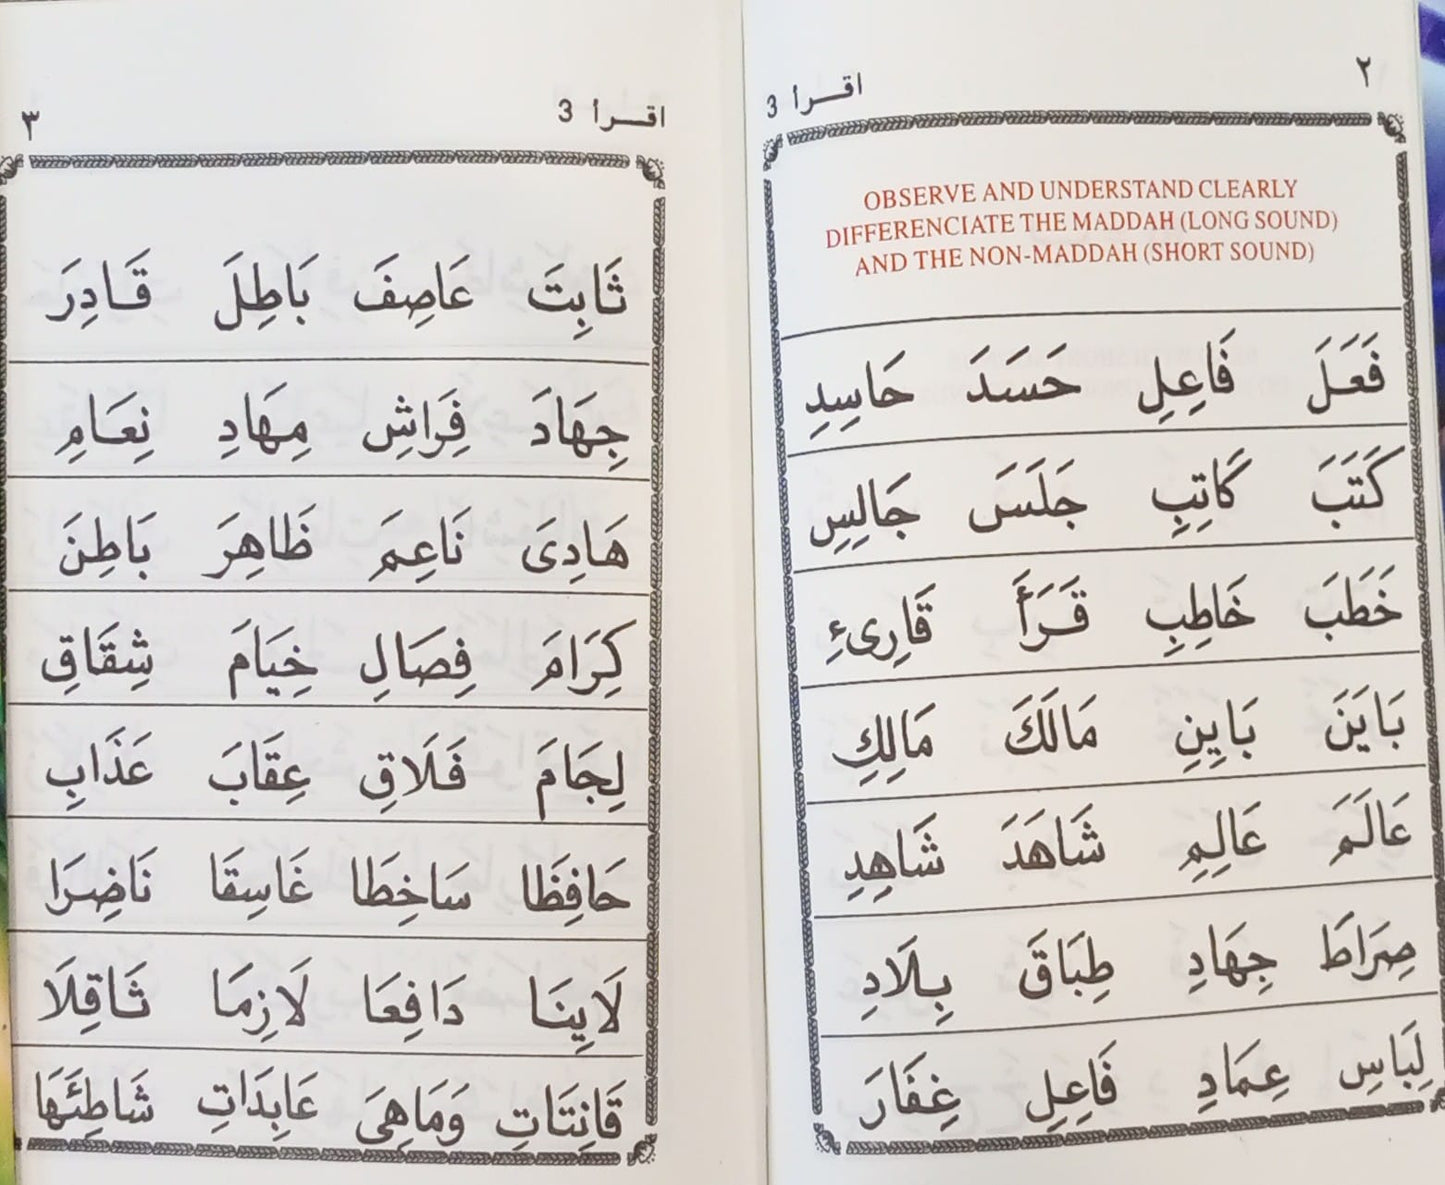 ٢
اقـرأ 3
OBSERVE AND UNDERSTAND CLEARLY
DIFFERENCIATE THE MADDAH (LONG SOUND)
AND THE NON-MADDAH (SHORT SOUND)
فَعَلَ فَاعِلِ حَسَدَ حَاسِدِ
كَتَبَ كَاتِبِ جَلَسَ جَالِسِ
خَطَبَ خَاطِبِ قَرَأَ قَارِىءِ
بَايَنَ بَايِنِ مَالَكَ مَالِكِ
عَالَمَ عَالِمِ شَاهَدَ شَاهِدِ
صِرَاطَ جِهَادِ طِبَاقَ بِلَادِ
لِبَاسِ عِمَادِ فَاعِلِ غِفَارَ
اقـرأ 3
٣
ثَابِتَ عَاصِفَ بَاطِلَ قَادِرَ
جِهَادَ فِرَاشِ مِهَادِ نِعَامِ
هَادِىَ نَاعِمَ ظَاهِرَ بَاطِنَ
كِرَامَ فِصَالِ خِيَامَ شِقَاقِ
لِجَامَ فَلَاقِ عِقَابَ عَذَابِ
حَافِظَا سَاخِطَا غَاسِقَا نَاضِرَا
لَايِنَا دَافِعَا لَازِمَا ثَاقِلَا
قَانِتَاتِ وَمَاهِىَ عَابِدَاتِ شَاطِئَهَا